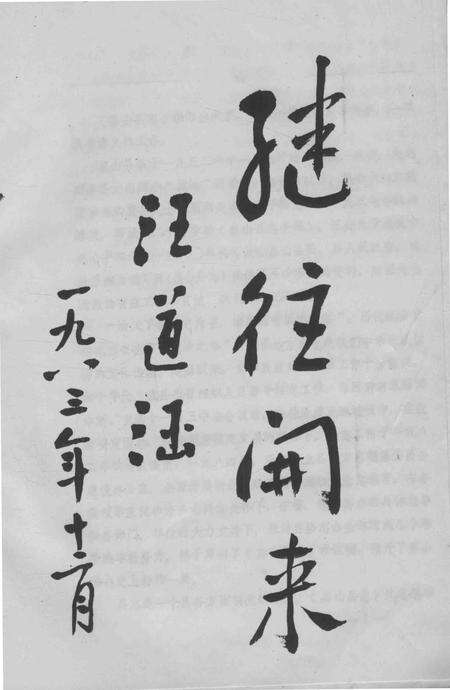 继往开来
汪道涵
一九八三年十二月